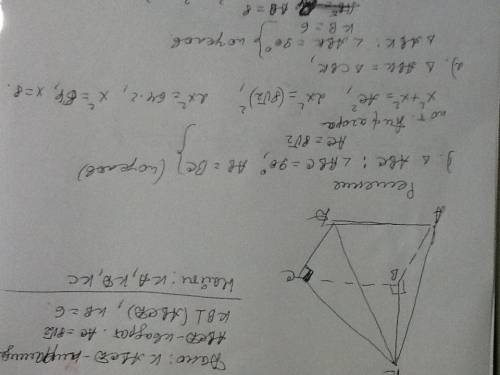 Дано: КABCD-пирамида
ABCD-квадрат. AC=8√2
KB⊥(ABCD), KB=6.
Найти: KA, KD, KC
K
B
C
A
D
Решение
1). Δ ABC: ∠ABC=90°, AB=BC} (по услов)
AC=8√2
по т. Пифагора
x²+x²=AC², 2x²=(8√2)², 2x²=64·2, x²=64, x=8.
2). Δ ABK = Δ CBK,
Δ ABK: ∠ABK=90°} по услов
KB=6
AB=8